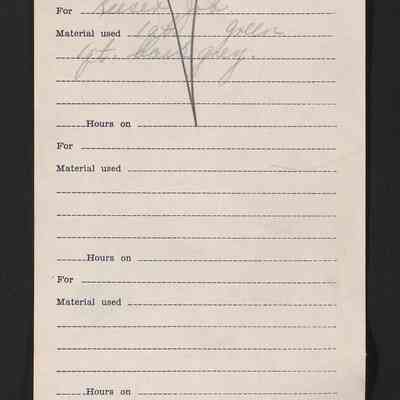 For Keiser Job
Material used 1 qt. green
qt. dark grey.
Hours on
For
Material used
Hours on
For
Material used
Hours on